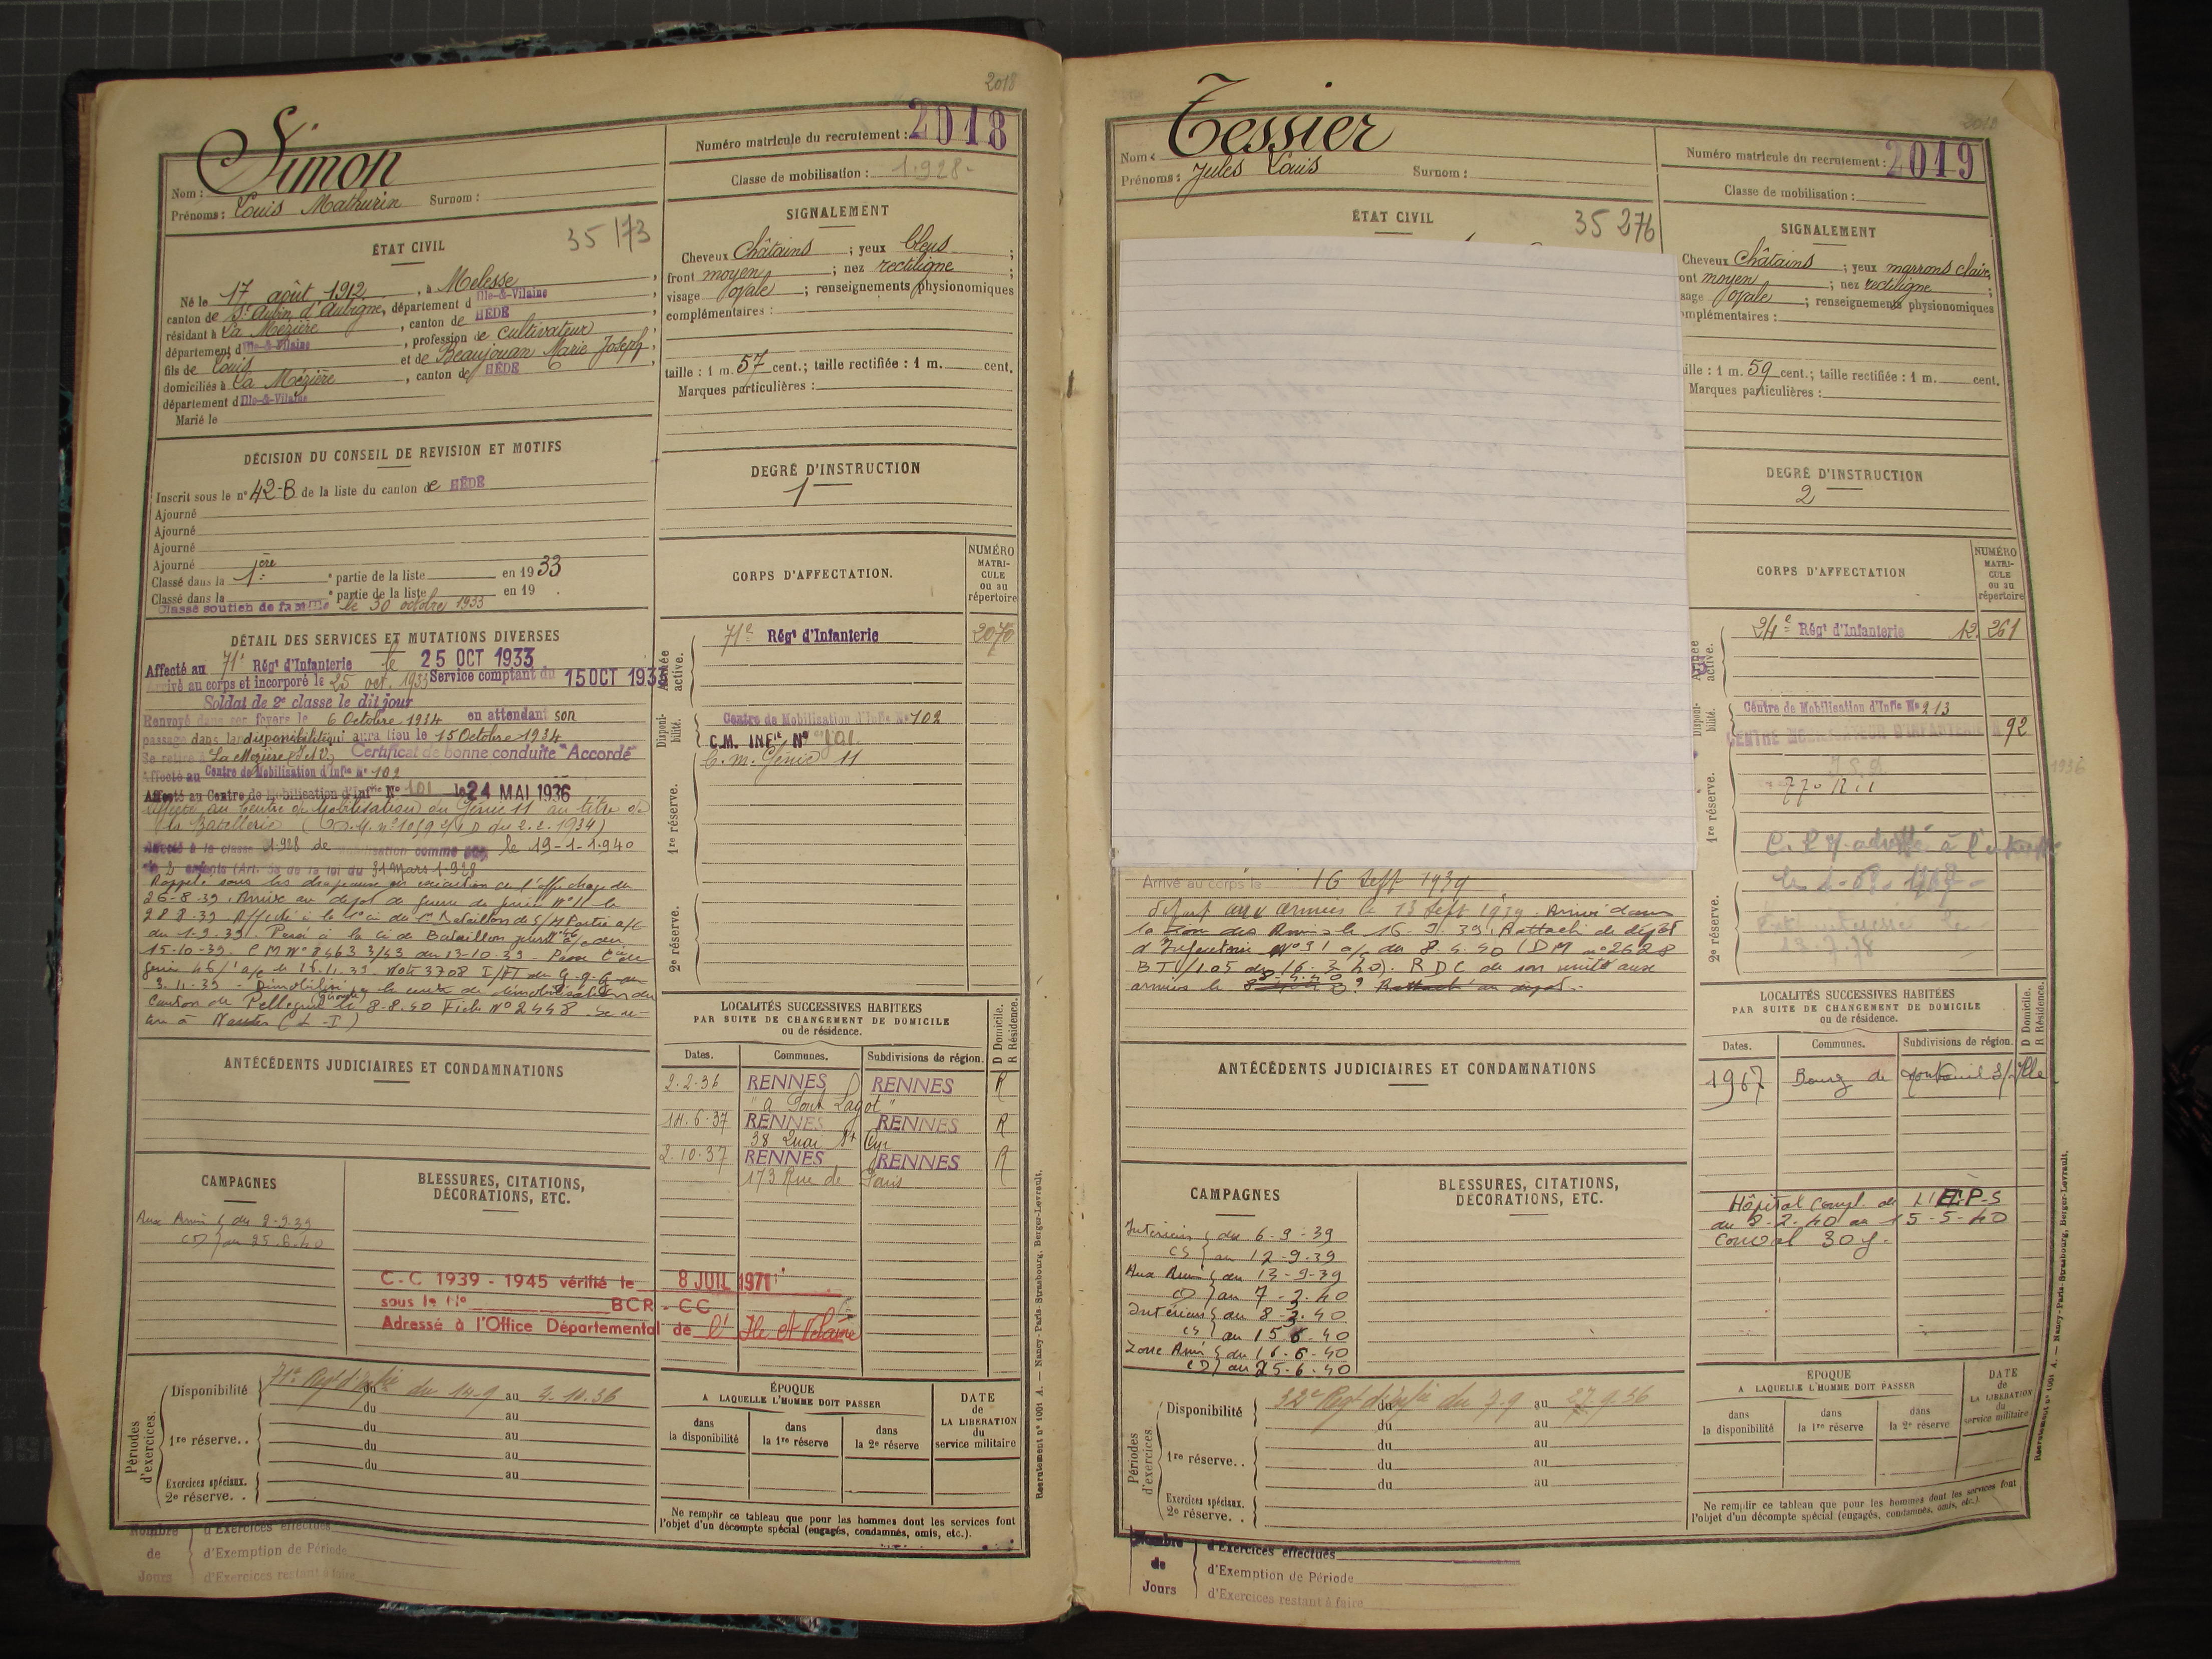 2018
Simon
Nom :
Prénoms : Louis Mathurin Surnom :
Numéro matricule du recrutement : 2018
Classe de mobilisation : 1.928-
ÉTAT CIVIL
35 173
Né le 17 août 1912, à Melesse,
canton de St Aubin d'Aubigné, département d Ille-&-Vilaine,
résidant à La Mézière, canton de HÉDÉ,
département d Ille-&-Vilaine, profession de cultivateur
fils de Louis et de Beaujouan Marie Joseph,
domiciliés à La Mézière, canton de HÉDÉ,
département d Ille-&-Vilaine
Marié le
SIGNALEMENT
Cheveux Châtains ; yeux bleus ;
front moyen ; nez rectiligne ;
visage ovale ; renseignements physionomiques
complémentaires :
taille : 1 m. 57 cent.; taille rectifiée : 1 m. cent.
Marques particulières :
DÉCISION DU CONSEIL DE REVISION ET MOTIFS
Inscrit sous le n° 42-B de la liste du canton de HÉDÉ
Ajourné
Ajourné
Ajourné
Ajourné
Classé dans la 1ère partie de la liste en 1933
Classé dans la partie de la liste en 19 .
Classé soutien de famille le 30 octobre 1933
DEGRÉ D'INSTRUCTION
1
DÉTAIL DES SERVICES ET MUTATIONS DIVERSES
Affecté au 71e Régt d'Infanterie le 25 OCT 1933
Arrivé au corps et incorporé le 25 oct. 1933 Service comptant du 15 OCT 1933
Soldat de 2e classe le dit jour
Renvoyé dans ses foyers le 6 Octobre 1934 en attendant son
passage dans la disponibilité qui aura lieu le 15 Octobre 1934
Se retire à La Mézière (I&V) Certificat de bonne conduite "Accordé"
Affecté au Centre de Mobilisation d'Infie N° 102
Affecté au Centre de Mobilisation d'Infrie N° 101 le 24 MAI 1936
Affecté au Centre de Mobilisation du Génie 11 au titre de
la Batellerie
1928 de mobilisation comme le 19-1-1940
de 2 enfants (Art. 58 de la loi du 31 Mars 1928
Rappelé sous les drapeaux
26-8-39. Arrivé au dépôt de guerre du génie N° 11 le
28 8.39. Affecté à la
du 1-9-39. Passé à la Cie de Bataillon
15-10-39. C M N° 8463 3/43 du 13-10-39 - Passé
génie 46/1 a/c le 15.11.39 Note 3708 I/ET du G.Q.G. du
3-11-39 - Démobilisé le centre de démobilisation du
Canton de Pellegrue (Gironde) le 8-8.40 Fiche N° 2448 Se re-
tire à Nantes (L-I)
CORPS D'AFFECTATION.
NUMÉRO MATRI-CULE ou au répertoire
Armée active.
71e Régt d'Infanterie 2070
Disponi-bilité.
Centre de Mobilisation d'Infie N° 102
C.M. INFIE N° 101
C. m. Génie 11
1re réserve.
2e réserve.
ANTÉCÉDENTS JUDICIAIRES ET CONDAMNATIONS
LOCALITÉS SUCCESSIVES HABITÉES
PAR SUITE DE CHANGEMENT DE DOMICILE
ou de résidence.
D Domicile.
R Résidence.
Dates. Communes. Subdivisions de région.
2-2-36 RENNES RENNES R
"a Pont Lagot"
14-6-37 RENNES RENNES R
38 Quai St Cyr
2-10-37 RENNES RENNES R
173 Rue de Paris
CAMPAGNES
Aux Armées du 2-9-39
CD au 25-6-40
BLESSURES, CITATIONS,
DÉCORATIONS, ETC.
C-C 1939 - 1945 vérifié le 8 JUIL 1971
sous le N° BCR - CC
Adressé à l'Office Départemental de l'Ille et Vilaine
Périodes d'exercices.
Disponibilité 71e Régt d'Infie du 14-9 au 4-10.36
du au
1re réserve.. du au
du au
du au
Exercices spéciaux.
2e réserve. .
ÉPOQUE
A LAQUELLE L'HOMME DOIT PASSER
dans la disponibilité
dans la 1re réserve
dans la 2e réserve
DATE de LA LIBÉRATION du service militaire
Ne remplir ce tableau que pour les hommes dont les services font
l'objet d'un décompte spécial (engagés, condamnés, omis, etc.).
Nombre de Jours
d'Exercices effectués
d'Exemption de Période
d'Exercices restant à faire
Recrutement n° 1001 A. — Nancy-Paris-Strasbourg, Berger-Levrault.
Tessier
Nom :
Prénoms : Jules Louis Surnom :
Numéro matricule du recrutement : 2019
Classe de mobilisation :
ÉTAT CIVIL
35 276
SIGNALEMENT
Cheveux Châtains ; yeux marrons clairs
ont moyen ; nez rectiligne ;
sage ovale ; renseignements physionomiques
omplémentaires :
ille : 1 m. 59 cent.; taille rectifiée : 1 m. cent.
Marques particulières :
DEGRÉ D'INSTRUCTION
2
CORPS D'AFFECTATION
NUMÉRO MATRI-CULE ou au répertoire
Armée active.
24e Régt d'Infanterie 12.261
Disponi-bilité.
Centre de Mobilisation d'Infie N° 213
CENTRE MOBILISATEUR D'INFANTERIE N 92
1936
1re réserve.
2e réserve.
Arrivé au corps le 16 Sept 1939
Départ aux armées le 13 sept 1939. Arrivé dans
la zone des Armées le 16. 9. 39. Rattaché de dépôt
d'Infanterie N° 31 a/c du 8.4.40 (DM n° 2628
BTV/1.05 du 16.3.40). R D C de son unité aux
armées le
ANTÉCÉDENTS JUDICIAIRES ET CONDAMNATIONS
LOCALITÉS SUCCESSIVES HABITÉES
PAR SUITE DE CHANGEMENT DE DOMICILE
ou de résidence.
D Domicile.
R Résidence.
Dates. Communes. Subdivisions de région.
1967 Bourg de Montreuil s/ Ille
Hôpital Compl. de
au 15-5-40
convol 30 j.
CAMPAGNES
Intérieur du 6-9-39
CS au 12-9-39
Aux Armées du 13-9-39
CD au 7-2-40
Intérieur au 8-3-40
CS au 15-6-40
Zone Armées du 16-6-40
CD au 25-6-40
BLESSURES, CITATIONS,
DÉCORATIONS, ETC.
Périodes d'exercices.
Disponibilité 32e Régt d'Infie du 7.9 au 27.9.36
du au
1re réserve.. du au
du au
du au
Exercices spéciaux.
2e réserve. .
ÉPOQUE
A LAQUELLE L'HOMME DOIT PASSER
dans la disponibilité
dans la 1re réserve
dans la 2e réserve
DATE de LA LIBÉRATION du service militaire
Ne remplir ce tableau que pour les hommes dont les services font
l'objet d'un décompte spécial (engagés, condamnés, omis, etc.)
Nombre de Jours
d'Exercices effectués
d'Exemption de Période
d'Exercices restant à faire
Recrutement n° 1001 A. — Nancy-Paris-Strasbourg, Berger-Levrault.